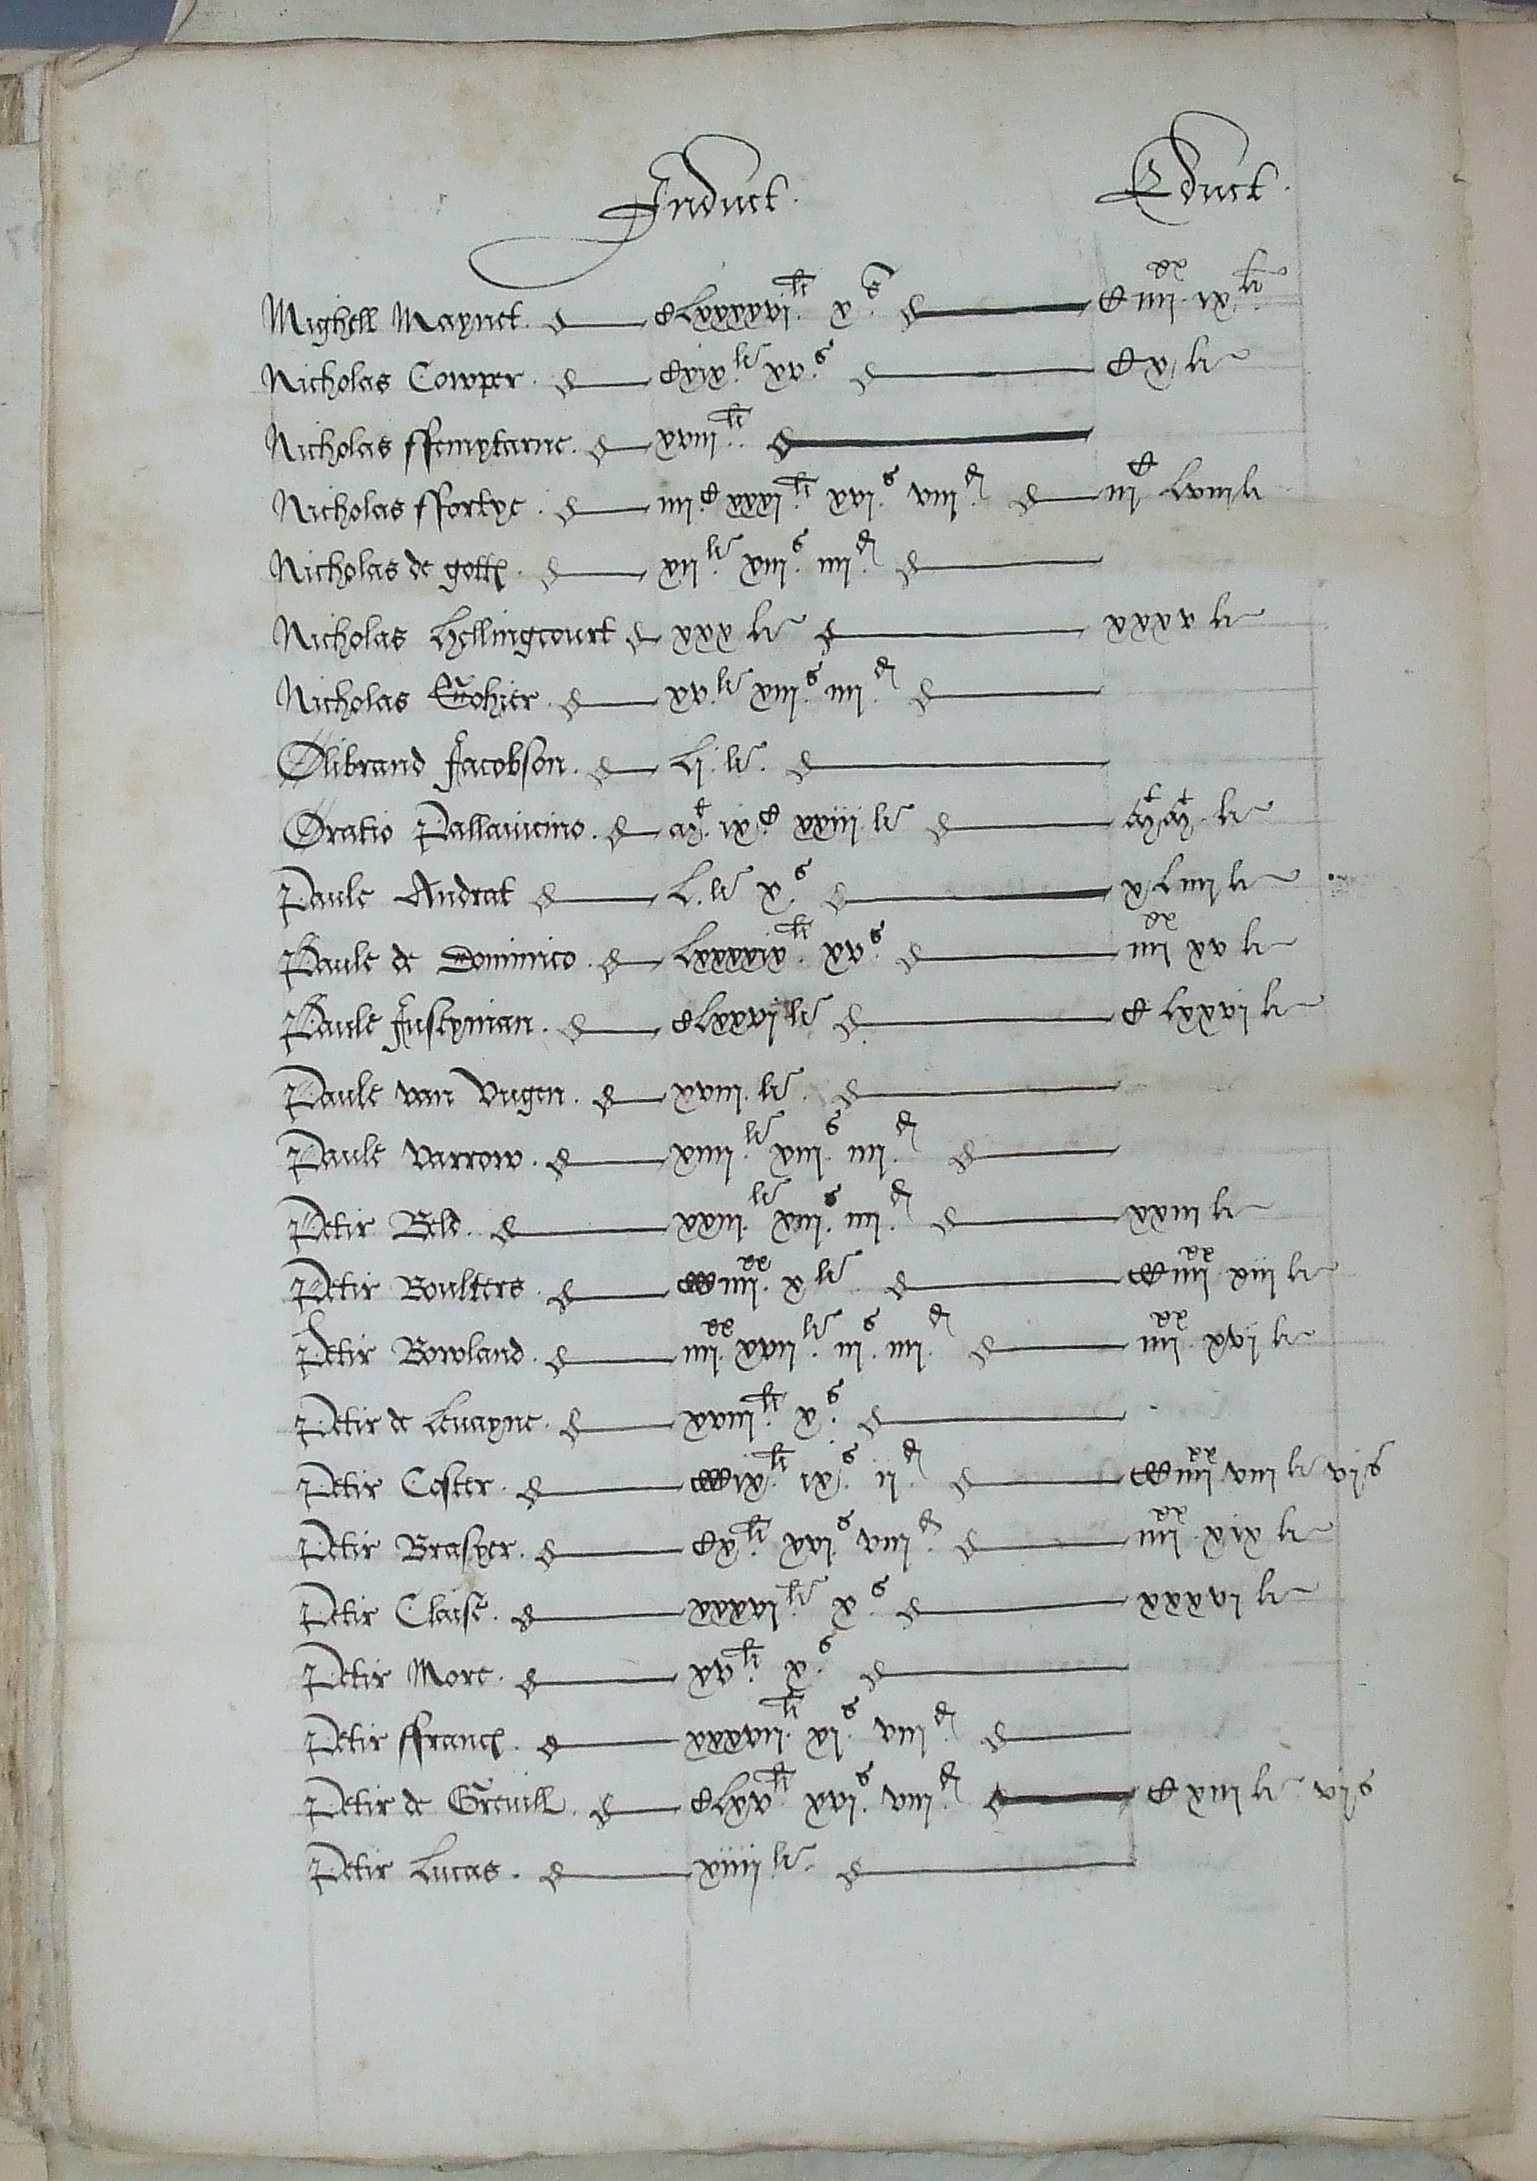 Induct. Educt.
Mighell Maynet. Clxxxxvi.li x.s C iiii.xx ix.li
Nicholas Cowper. Cxix.li xv.s Cx li
Nicholas ffemytarne. xviii.li
Nicholas ffortye. iiii.C xxxi.li xvi.s viii.d iii C Lviii li
Nicholas de gott xii.li xiii.s iiii.d
Nicholas Hellingcourt xxx li xxxv li
Nicholas Gohier. xv.li xiii.s iiii.d
Olibrand Jacobson. Li.li.
Oratio Pallavicino. ix.C xxiii li li
Paule Andrat L.li x.s xLiiii li
Paule de Dominico. Lxxxxix.li xv.s iiii.xx xv li
Paule Justynian. Clxxvi li C lxxvi li
Paule van Vugen. xviii.li
Paule Varrow. xiiii.li xiii.s iiii.d
Petir Beld. xxiii.li xiii.s iiii.d xxiii li
Petir Boulters. CC iiii.xx x li CC iiii.xx xiii li
Petir Bowland. iiii.xx xvii.li iii.s iiii.d iiii.xx xvi li
Petir de Levayne. xviii.li x.s
Petir Coster. CCCix.li ix.s ii.d CC iiii.xx viii li vi s
Petir Brasyer. Cx.li xvi.s viii.d iiii.xx xix li
Petir Claise. xxxvi.li x.s xxxvi li
Petir More. xv.li x.s
Petir ffranc. xxxvii.li xi.s viii.d
Petir de Grevill. Clxv.li xvi.s viii.d C xiii li vi s
Petir Lucas. xiiii li.